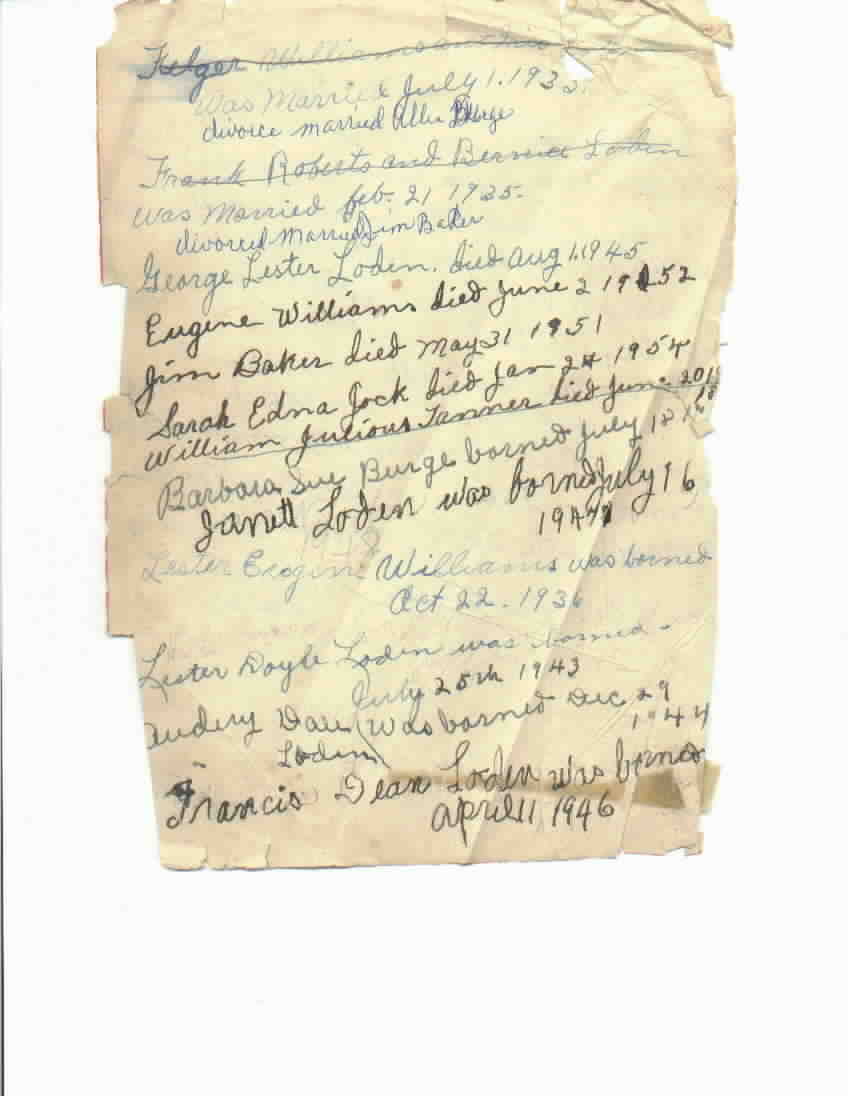 Felger Williams and
was Married July 1. 1933.
divorce married Allie Burge
Frank Roberts and Bernice Loden
was Married feb. 21 1935.
divorced Married Jim Baker
George Lester Loden. died aug 1. 1945
Eugene Williams died June 2 1952
Jim Baker died May 31 1951
Sarah Edna Jock died Jan 24 1954
William Julious Tanner died June 20
Barbara Sue Burge borned July 18
Janett Loden was borned July 16
1947
Lester Eugine Williams was borned
Oct 22. 1936
Lester Doyle Loden was borned
July 25th 1943
Audery Dau was borned Dec 29
1944
Loden
Francis Dean Loden was borned
april 11 1946